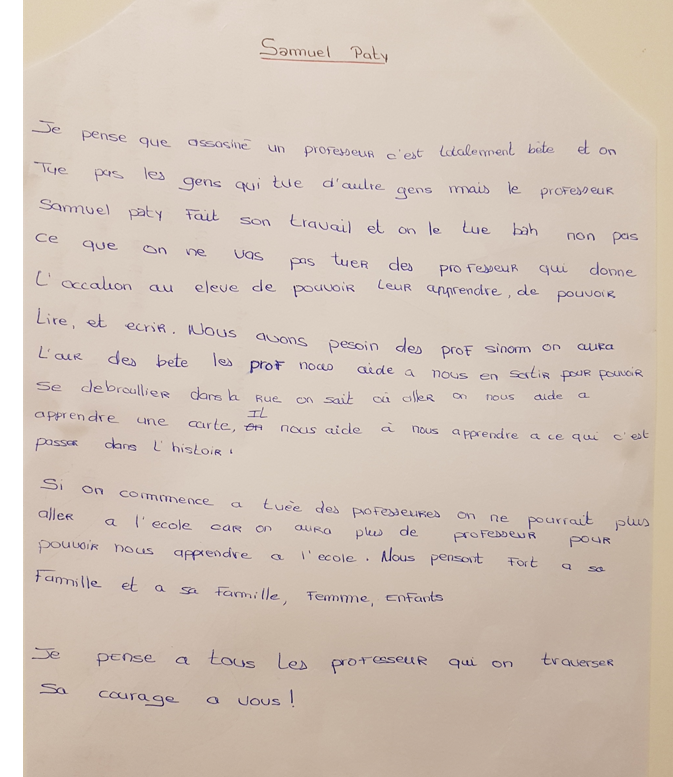 Samuel Paty
Je pense que assasiné un professeur c'est totalement bête et on
Tue pas les gens qui tue d'autre gens mais le professeur
Samuel paty Fait son travail et on le tue bah non pas
ce que on ne vas pas tuer des professeur qui donne
L'occation au eleve de pouvoir Leur apprendre, de pouvoir
Lire, et ecrir. Nous avons pesoin des prof sinom on aura
L'air des bete les prof nous aide a nous en sortir pour pouvoir
se debroullier dans la rue on sait où aller on nous aide a
apprendre une carte, IL nous aide à nous apprendre a ce qui c'est
passer dans L'histoir.
Si on commmence a tuèe des professeures on ne pourrait plus
aller a l'ecole car on aura plus de professeur pour
pouvoir nous apprendre a l'ecole. Nous pensont Fort a sa
Famille et a sa Famille, Femme, Enfants
Je pense a tous Les professeur qui on traverser
Sa courage a vous!